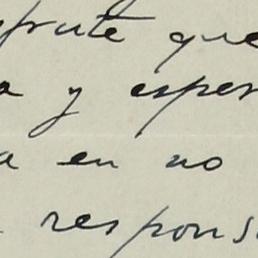 frute que
a y esper
a en no
respons